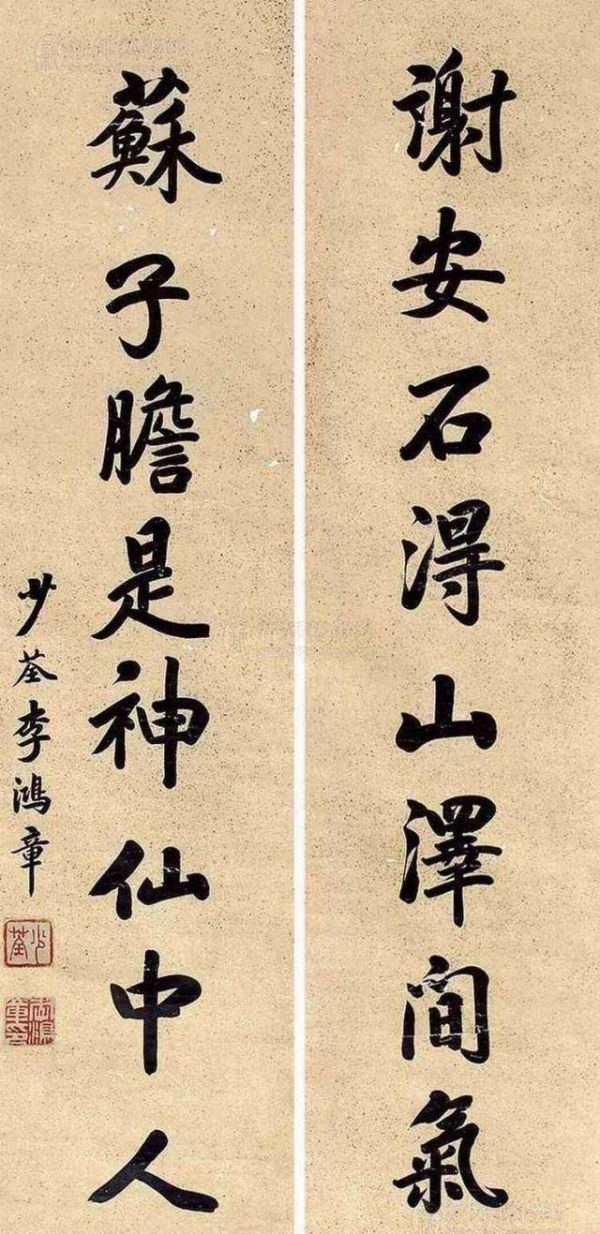 謝安石得山澤間氣
蘇子瞻是神仙中人
少荃李鴻章
少荃